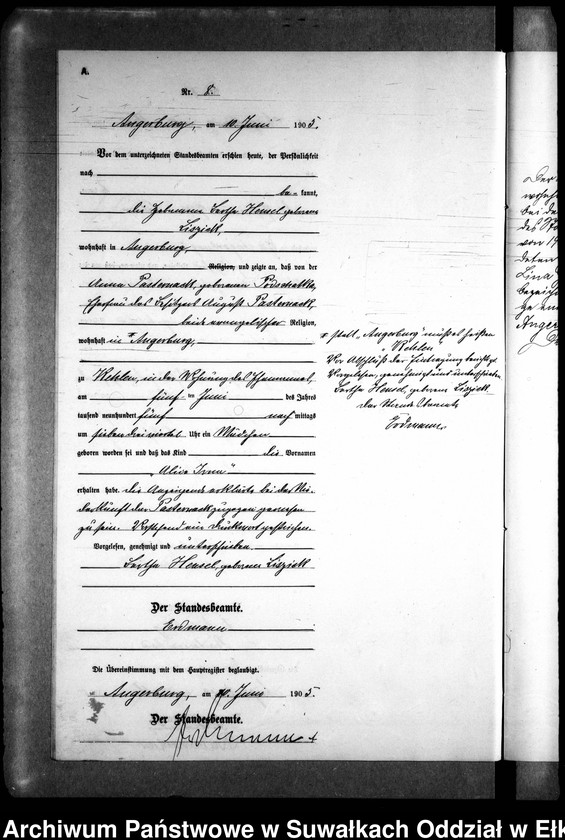 A.
Nr. 8.
Angerburg, am 10. Juni 1905.
Vor dem unterzeichneten Standesbeamten erschien heute, der Persönlichkeit
nach
be- kannt,
die Hebamme Bertha Hensel geborene
Lisziett,
wohnhaft in Angerburg,
Religion, und zeigte an, daß von der
Anna Pasternack, geborenen Podschattka,
Ehefrau des August Pasternack,
beide evangelischer Religion,
wohnhaft in + Angerburg,
zu Kehlen, in der Wohnung des Ehemannes,
am fünf- ten Juni des Jahres
tausend neunhundert fünf nach mittags
um sieben dreiviertel Uhr ein Mädchen
geboren worden sei und daß das Kind die Vornamen
„Alice Irma"
erhalten habe. Die Anzeigende erklärte bei der Nie-
derkunft der Pasternack zugegen gewesen
zu sein. Vorstehend ein Druckwort gestrichen.
Vorgelesen, genehmigt und unterschrieben
Bertha Hensel, geborene Lisziett
Der Standesbeamte.
Erdmann
Die Übereinstimmung mit dem Hauptregister beglaubigt.
Angerburg, am 10. Juni 1905.
Der Standesbeamte.
Erdmann
+ statt „Angerburg" muß es heißen
„Kehlen
Vor Abschluß der Eintragung berichtigt
Vorgelesen, genehmigt und unterschrieben
Bertha Hensel, geborene Lisziett
Der Standesbeamte
Erdmann
Der
wohnh
bei de
des St
von 19
deten
Lina
bezeich
ge
Anger
Archiwum Państwowe w Suwałkach Oddział w Ełk